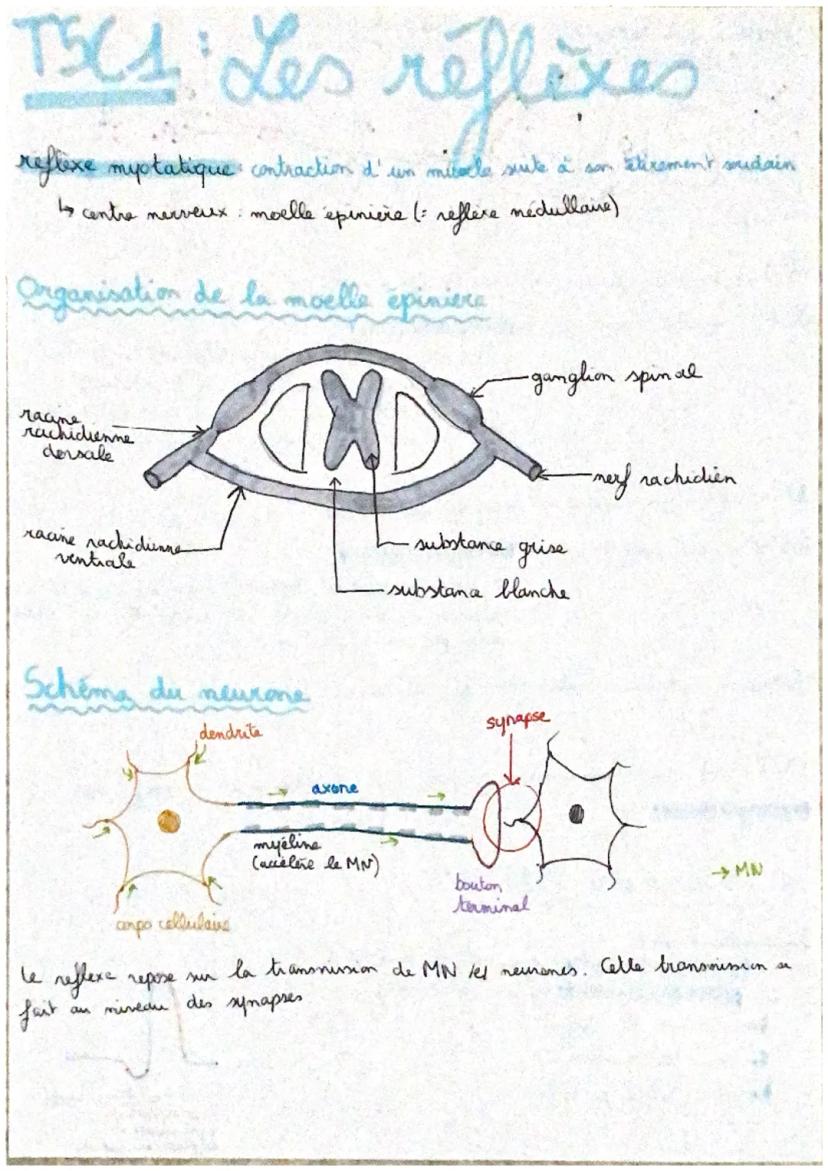 T5C1 : Les réflèxes
reflexe myotatique : contraction d'un muscle suite à son étirement soudain
↳ centre nerveux : moelle épinière (= réflèxe médullaire)
Organisation de la moelle épiniere
ganglion spinal
racine
rachidienne
dorsale
nerf rachidien
racine rachidienne
ventrale
substance grise
substance blanche
Schéma du neurone
synapse
dendrite
axone
myéline
(accélère le MN)
→ MN
bouton
terminal
corps cellulaire
Le reflexe repose sur la transmission de MN neurones. Cette transmission se
fait au niveau des synapses